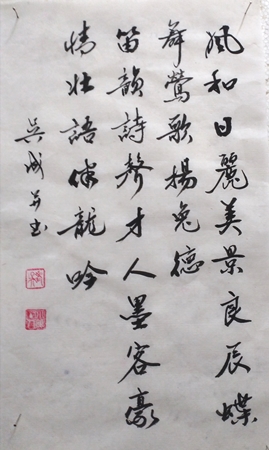 風和日麗美景良辰蝶
舞鶯歌楊兔德
笛韻詩聲才人墨客豪
情壯語龍吟
吳成并书